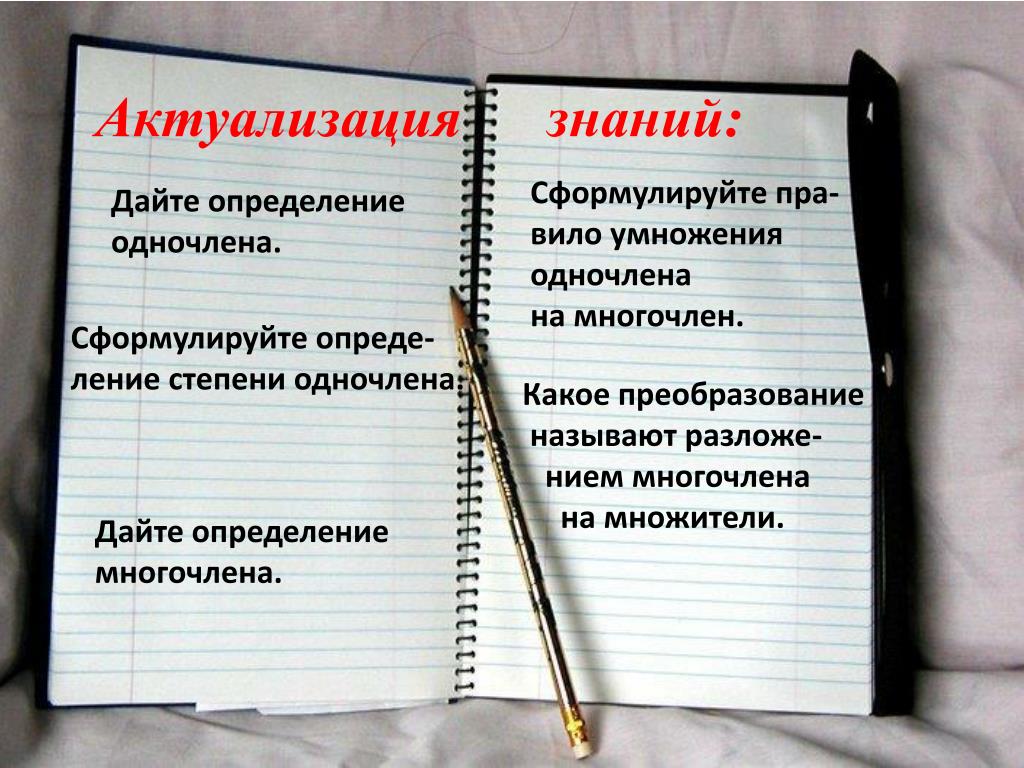 Актуализация знаний:
Дайте определение
одночлена.
Сформулируйте опреде-
ление степени одночлена.
Дайте определение
многочлена.
Сформулируйте пра-
вило умножения
одночлена
на многочлен.
Какое преобразование
называют разложе-
нием многочлена
на множители.